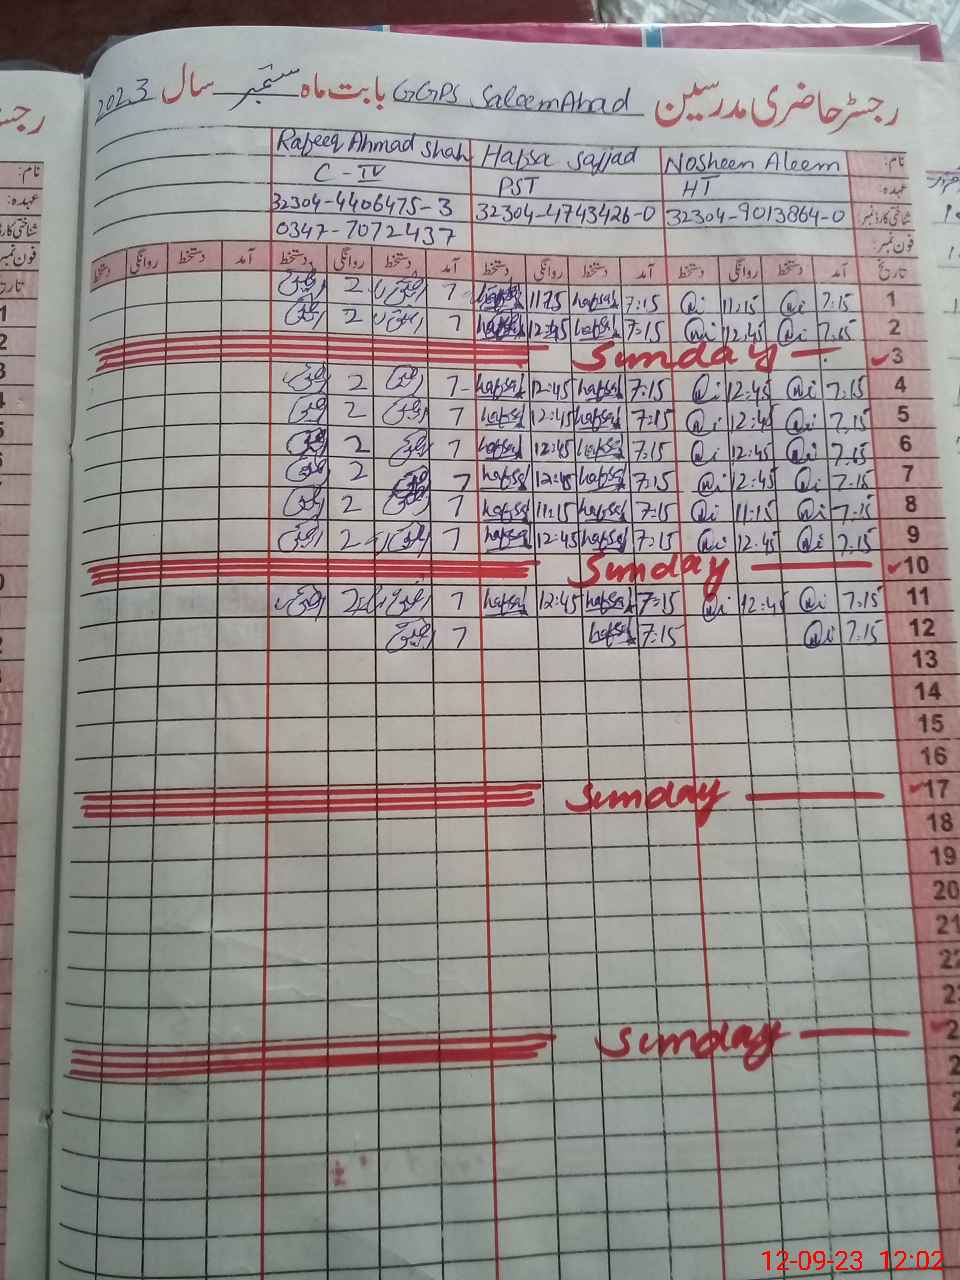 رجسٹر حاضری مدرسین GGPS SaleemAbad بابت ماہ ستمبر سال 2023
نام: Nosheen Aleem Hafsa Sajjad Rafeeq Ahmad Shah
عہدہ: HT PST C-IV
شناختی کارڈ نمبر 32304-9013864-0 32304-4743426-0 32304-4406475-3
فون نمبر: 0347-7072437
تاریخ آمد دستخط روانگی دستخط آمد دستخط روانگی دستخط آمد دستخط روانگی دستخط آمد دستخط روانگی دستخط
1 7:15 11:15 7:15 hafsa 1115 hafsa 7 2
2 7:15 12:45 7:15 hafsa 12:45 hafsa 7 2
3 Sunday
4 7:15 12:45 7:15 hafsa 12:45 hafsa 7 2
5 7:15 12:45 7:15 hafsa 12:45 hafsa 7 2
6 7:15 12:45 7:15 hafsa 12:45 hafsa 7 2
7 7:15 12:45 7:15 hafsa 12:45 hafsa 7 2
8 7:15 11:15 7:15 hafsa 11:15 hafsa 7 2
9 7:15 12:45 7:15 hafsa 12:45 hafsa 7 2
10 Sunday
11 7:15 12:45 7:15 hafsa 12:45 hafsa 7 2
12 7:15 7:15 hafsa 7
13
14
15
16
17 Sunday
18
19
20
21
22
Sunday
12-09-23 12:02